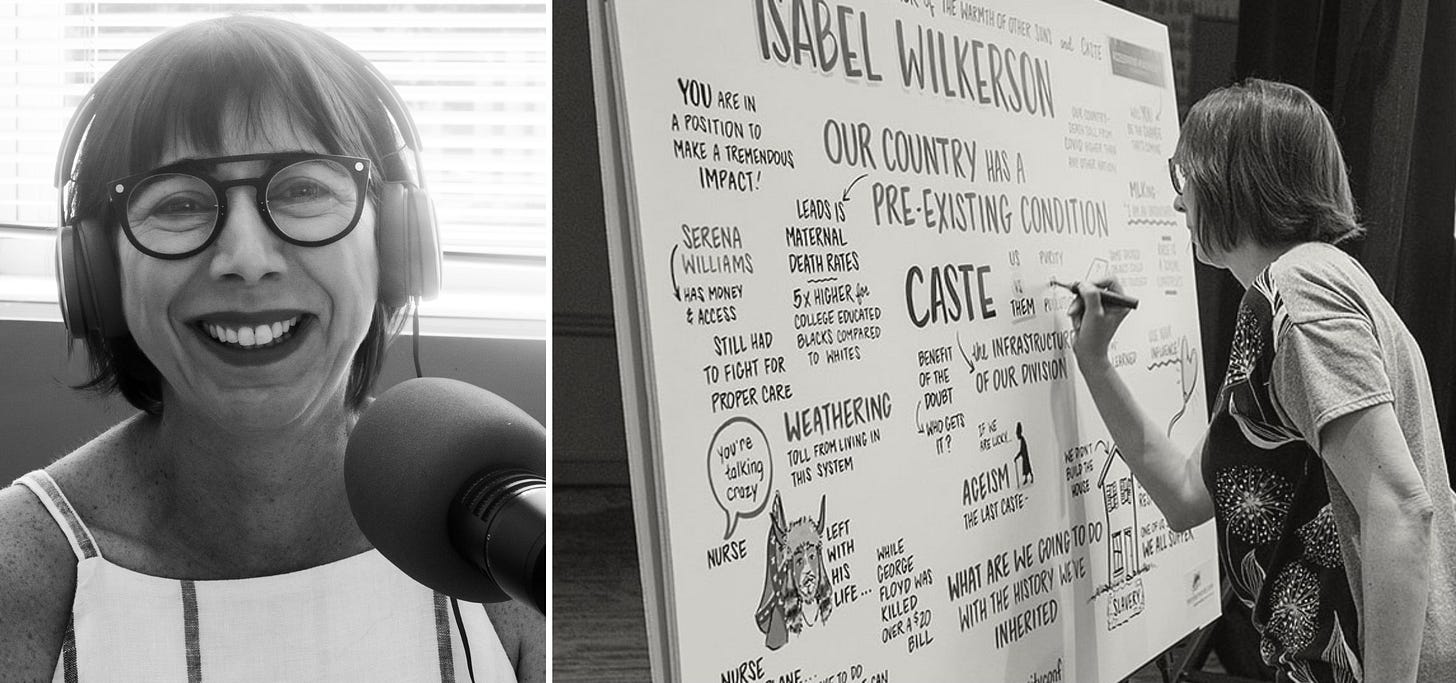 OF THE WARMTH OF OTHER SUNS and CASTE
ISABEL WILKERSON
YOU ARE IN
A POSITION TO
MAKE A TREMENDOUS
IMPACT!
OUR COUNTRY HAS A
PRE-EXISTING CONDITION
OUR COUNTRY-
DEATH TOLL FROM
COVID HIGHER THAN
ANY OTHER NATION
WILL YOU
BE THE CHANGE
THAT'S COMING
MLKing
SERENA
WILLIAMS
HAS MONEY
& ACCESS
STILL HAD
TO FIGHT FOR
PROPER CARE
LEADS IS
MATERNAL
DEATH RATES
5X HIGHER for
COLLEGE EDUCATED
BLACKS COMPARED
TO WHITES
CASTE
US
VS
THEM
PURITY
the INFRASTRUCTURE
OF OUR DIVISION
BENEFIT
OF THE
DOUBT
WHO GETS
IT?
LEARNED
USE YOUR
INFLUENCE!
WEATHERING
TOLL FROM LIVING IN
THIS SYSTEM
you're
talking
crazy
NURSE
LEFT
WITH
HIS
LIFE...
WHILE
GEORGE
FLOYD WAS
KILLED
OVER A $20
BILL
IF WE
ARE LUCKY...
AGEISM
THE LAST CASTE-
WE DIDN'T
BUILD THE
HOUSE
WE ALL SUFFER
SLAVERY
WHAT ARE WE GOING TO DO
WITH THE HISTORY WE'VE
INHERITED
NURSE
TO DO
CAN